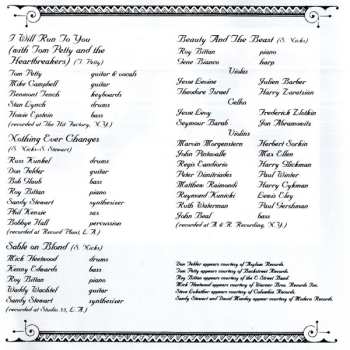 I Will Run To You
(with Tom Petty and the
Heartbreakers) (T. Petty)
Tom Petty guitar & vocals
Mike Campbell guitar
Benmont Tench keyboards
Stan Lynch drums
Howie Epstein bass
(recorded at The Hit Factory, N.Y.)
Nothing Ever Changes
(S. Nicks-S. Stewart)
Russ Kunkel drums
Don Felder guitar
Bob Glaub bass
Roy Bittan piano
Sandy Stewart synthesizer
Phil Kenzie sax
Bobbye Hall percussion
(recorded at Record Plant, L.A.)
Sable on Blond (S. Nicks)
Mick Fleetwood drums
Kenny Edwards bass
Roy Bittan piano
Waddy Wachtel guitar
Sandy Stewart synthesizer
(recorded at Studio 55, L.A.)
Beauty And The Beast (S. Nicks)
Roy Bittan piano
Gene Bianco harp
Violas
Jesse Levine Julien Barber
Theodore Israel Harry Zaratzian
Cellos
Jesse Levy Frederick Zlotkin
Seymour Barab Jon Abramowitz
Violins
Marvin Morgenstern Herbert Sorkin
John Pintavalle Max Ellen
Regis Eandiorio Harry Glickman
Peter Dimitriades Paul Winter
Matthew Raimondi Harry Cykman
Raymond Kunicki Lewis Eley
Ruth Waterman Paul Gershman
John Beal bass
(recorded at A & R Recording, N.Y.)
Don Felder appears courtesy of Asylum Records.
Tom Petty appears courtesy of Backstreet Records.
Roy Bittan appears courtesy of the E Street Band
Mick Fleetwood appears courtesy of Warner Bros. Records Inc.
Steve Lukather appears courtesy of Columbia Records.
Sandy Stewart and David Munday appear courtesy of Modern Records.